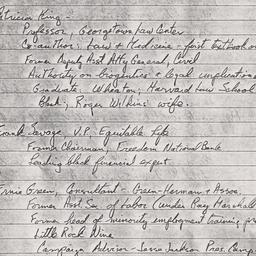 Patricia King -
Professor, Georgetown Law Center
Co-author: Law & Medicine - first textbook on
Former Deputy Asst Atty General, Civil
Authority on bioethics & legal implications
Graduate, Wheaton; Harvard Law School
Black; Roger Wilkins' wife.
Frank Savage, V.P., Equitable Life
Former Chairman, Freedom National Bank
Leading black financial expert
Ernie Green, Consultant - Green-Herman & Assoc.
Former Asst. Sec. of Labor (under Ray Marshall
Former head of minority employment training
Little Rock Nine
Campaign Advisor - Jesse Jackson Pres. Camp